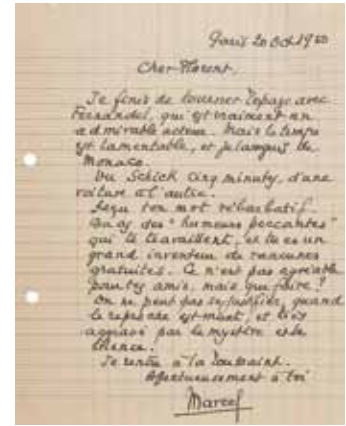 Paris 20 Oct 1950
Cher Florent.
Je finis de tourner Topaze avec
Fernandel, qui est vraiment un
admirable acteur. Mais le temps
est lamentable, et je languis de
Monaco.
Vu Schick cinq minutes, d'une
voiture à l'autre.
Reçu ton mot rébarbatif.
Tu as des "humeurs peccantes"
qui te travaillent, et tu es un
grand inventeur de rancunes
gratuites. Ce n'est pas agréable
pour tes amis, mais que faire?
On ne peut pas se justifier, quand
le reproche est muet, et
aggravé par le mystère et le
silence.
Je rentre à la Toussaint.
Affectueusement à toi
Marcel